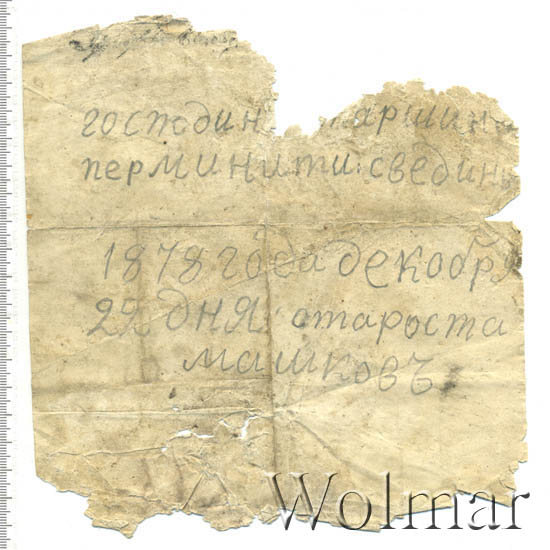 господин таршин
перминити сведин
1878 года декобря
22 дня староста
машковъ
Wolmar